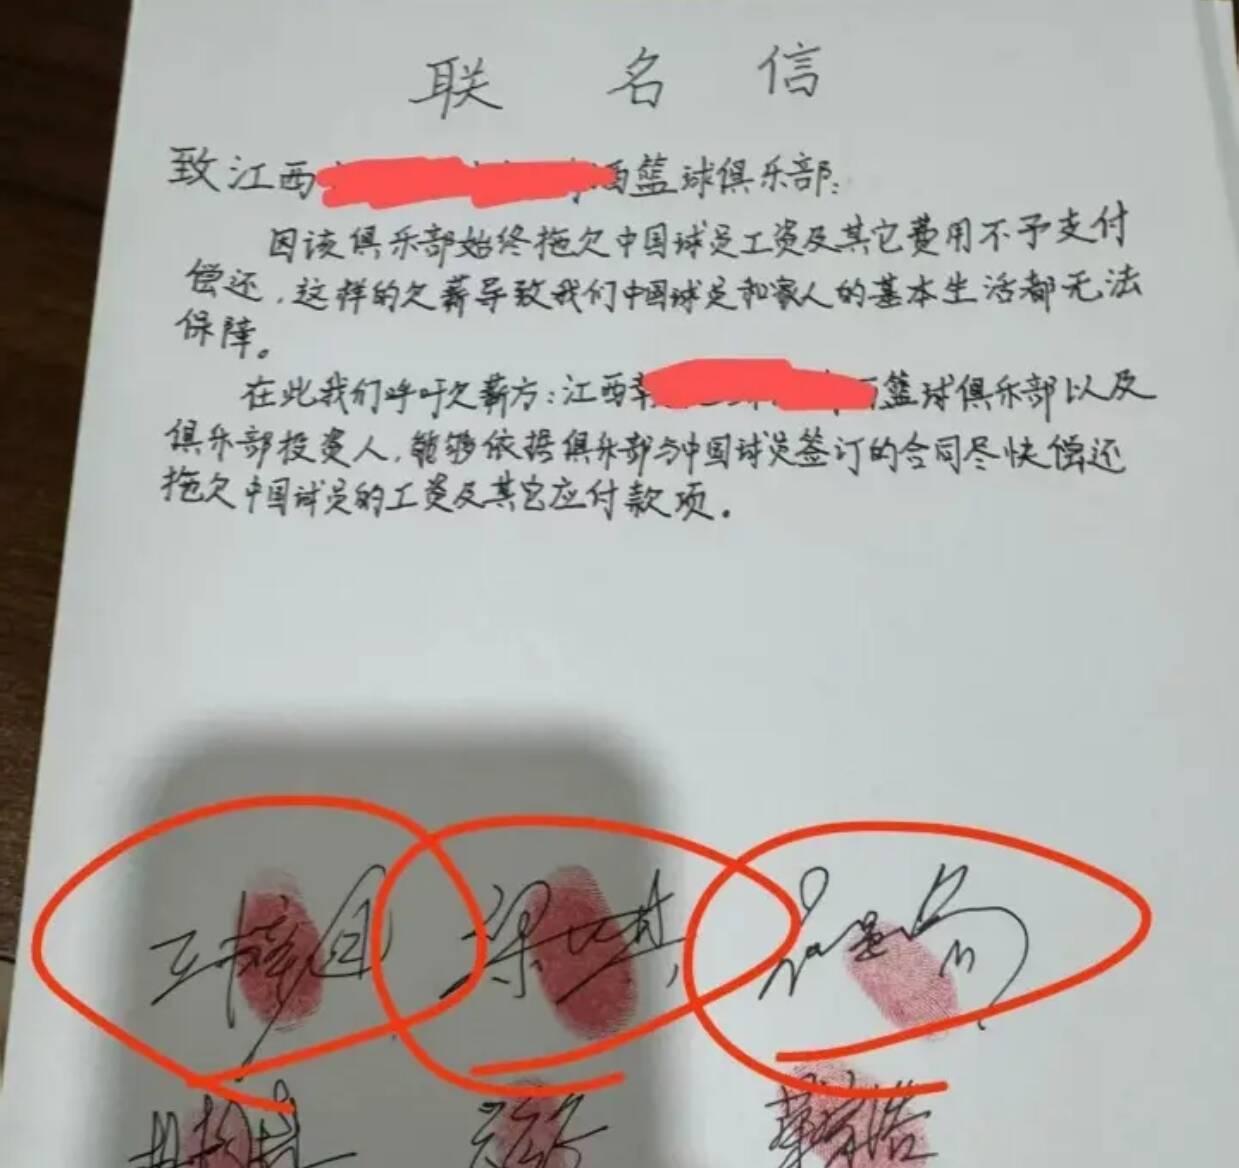 联名信
致江西篮球俱乐部：
因该俱乐部始终拖欠中国球员工资及其它费用不予支付
偿还，这样的欠薪导致我们中国球员和家人的基本生活都无法
保障。
在此我们呼吁欠薪方：江西篮球俱乐部以及
俱乐部投资人，能够依据俱乐部与中国球员签订的合同尽快偿还
拖欠中国球员的工资及其它应付款项。